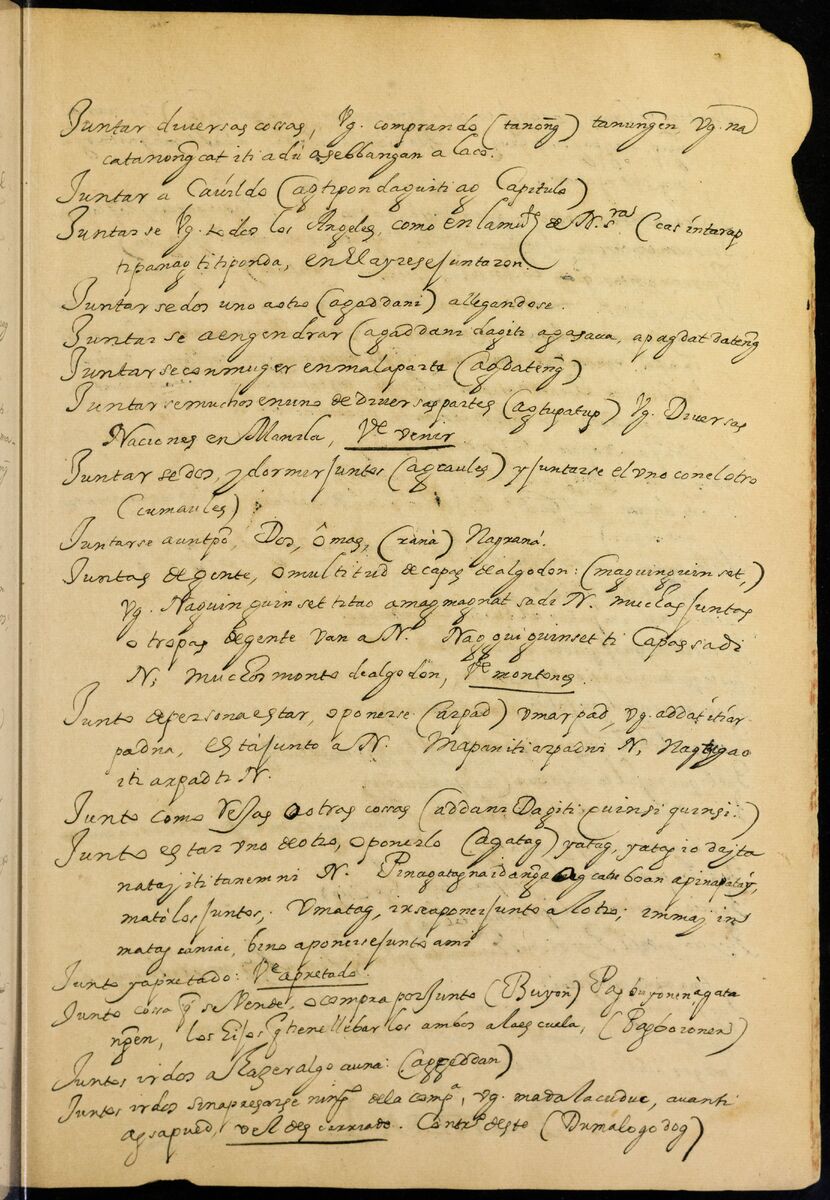 Juntar diversas cossas, Vg. comprando (tanong̃) tanung̃en, Vg. na
catanong̃cat iti adu a sebbang̃an a laco.
Juntar a Cauildo (agtipon daguiti ag Capitulo)
Juntarse Vg. todos los Angeles, como en la mu.te de N. S.ra (cas intarap
tipanagtitiponda, en El ayre se juntaron.
Juntarse dos uno a otro (agaddani) allegandose.
Juntarse a engendrar (agaddani dagiti agasaua, apagdatdateng̃
Juntarse con muger en mala parte (agdateng̃)
Juntarse muchos en uno de Diversas partes (agtuptup) Vg. Diversas
Naciones en Manila, Ve. venir.
Juntarse dos, y dormir juntos (agcaules) y juntarse el vno con el otro
(cumaules)
Juntarse a un tpō, Dos, ô mas, (raná) Nagraná.
Juntas de gente, o multitud de capas de algodon: (maguinguinset,)
Vg. Naguinguinset titao a magmagnat sadi N. muchas juntas
o tropas de gente van a N. Nagguiguinset ti Capas sadi
N; muchos monto de algodon, Ve. montones.
Junto de persona estar, o ponerse (arpad) Vmarpad, Vg. adda itiar
padna, està junto a N. Mapan iti arpadni N, Nagtugao
iti arpad ti N.
Junto como Vejas o otras cossas (addani Dagiti quinsi quinsi.)
Junto estar Vno de otro, o ponerlo (agatag) yatag, yatag io dijta
natay iti tanem ni N. Pinagatagnaidang̃a ag cabboan a pinapatay,
matòlos juntos, Vmàtag, irse a poner junto a lotro; immaj in
matag caniac, bino a ponerse junto ami
Junto y apretado: Ve. apretado.
Junto cossa q̃ se Vende, o compra por junto (Buyon) Pagbuyonen àgata
ng̃en, los hijos q̃ tiene llebar los ambos a la escuela, (Pagboyonen)
Juntos ir dos a hazer algo a una: (aggiddan)
Juntos ir dos sin apresarse ning.o de la comp.a, Vg. madalacuduc, auanti
agsapued, Ve A des carriado. Contr.o deste (Dumalogodog)